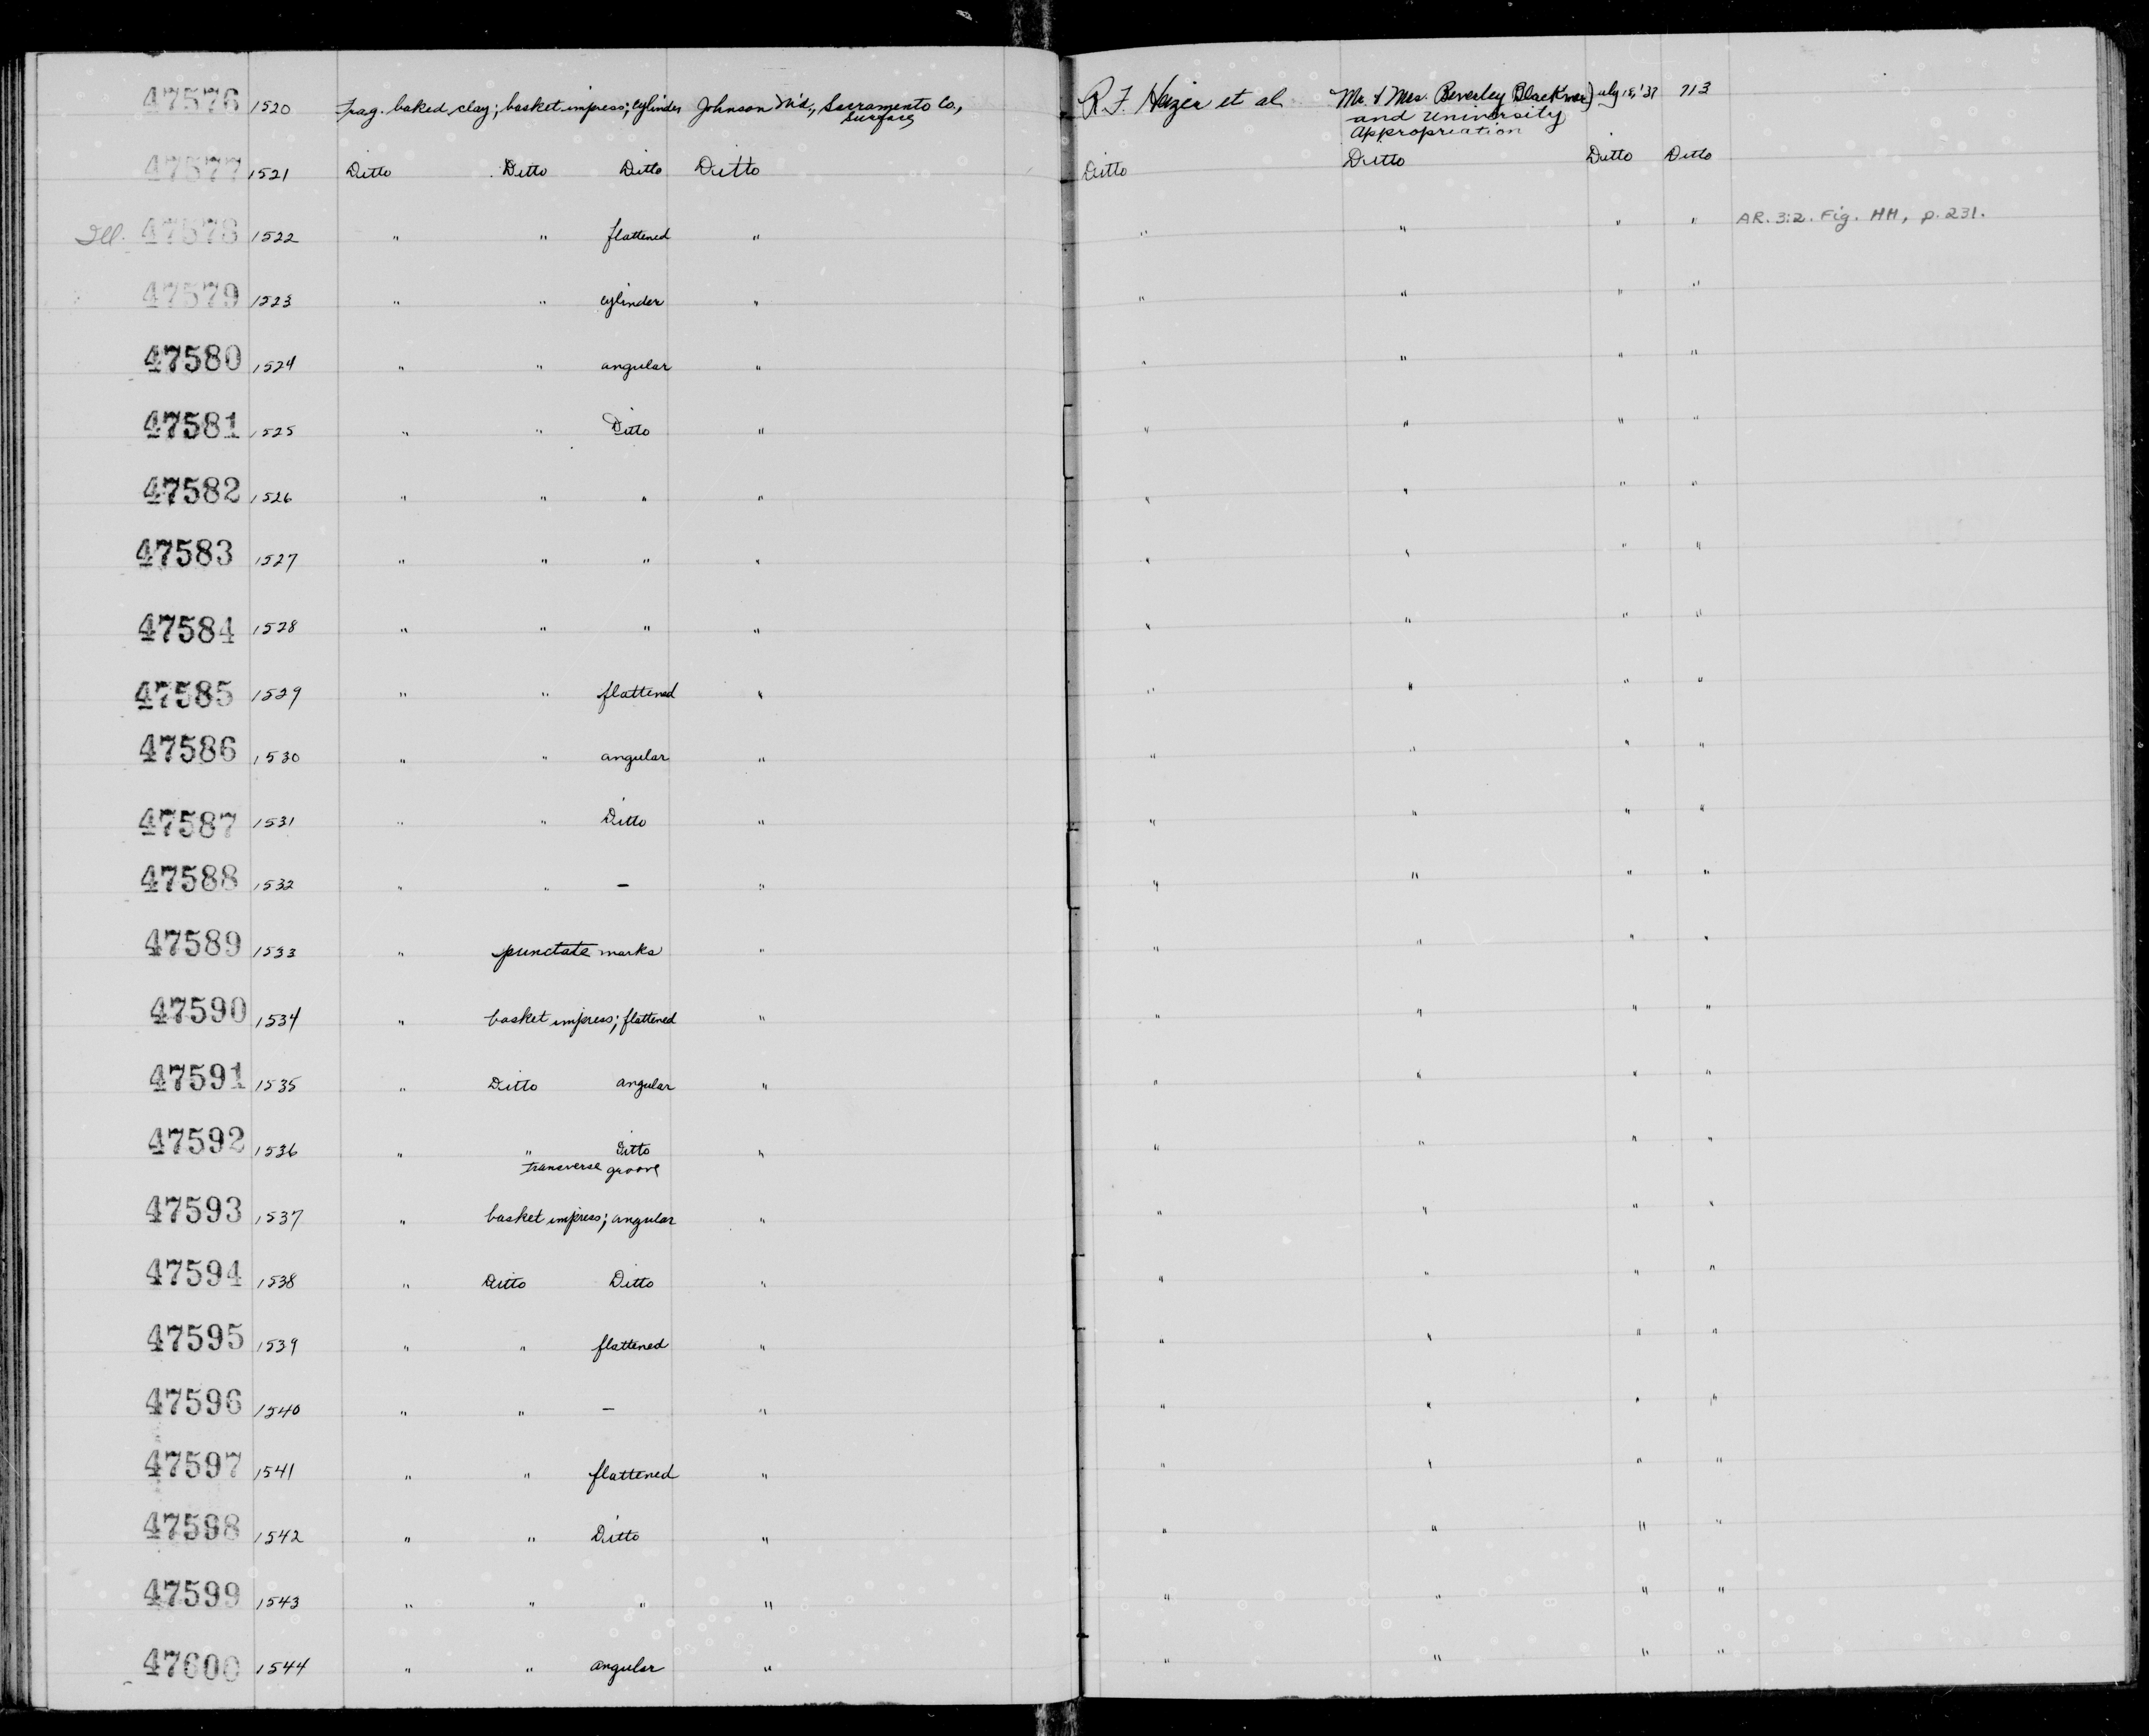 47576 1520 Frag. baked clay; basket impress; cylinder Johnson M'd., Sacramento Co., R.F. Heizer et al Mr. & Mrs. Beverley Blackmer July 15, '37 713
surface and University
Appropriation
47577 1521 Ditto Ditto Ditto Ditto Ditto Ditto Ditto Ditto
Ill. 47578 1522 " " flattened " " " " " AR. 3:2. Fig. HH, p. 231.
47579 1523 " " cylinder " " " " "
47580 1524 " " angular " " " " "
47581 1525 " " Ditto " " " " "
47582 1526 " " " " " " " "
47583 1527 " " " " " " " "
47584 1528 " " " " " " " "
47585 1529 " " flattened " " " " "
47586 1530 " " angular " " " " "
47587 1531 " " Ditto " " " " "
47588 1532 " " – " " " " "
47589 1533 " punctate marks " " " " "
47590 1534 " basket impress; flattened " " " " "
47591 1535 " Ditto angular " " " " "
47592 1536 " " Ditto " " " " "
transverse groove
47593 1537 " basket impress; angular " " " " "
47594 1538 " Ditto Ditto " " " " "
47595 1539 " " flattened " " " " "
47596 1540 " " – " " " " "
47597 1541 " " flattened " " " " "
47598 1542 " " Ditto " " " " "
47599 1543 " " " " " " " "
47600 1544 " " angular " " " " "